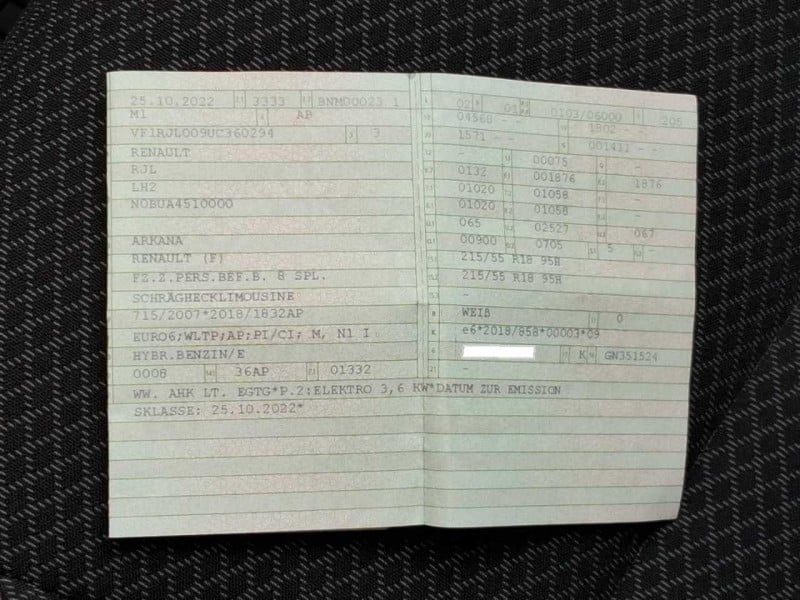 25.10.2022 3333 BNM00023 1
M1 AP
VF1RJL009UC360294 3
RENAULT
RJL
LH2
N0BUA4510000
ARKANA
RENAULT (F)
FZ.Z.PERS.BEF.B. 8 SPL.
SCHRÄGHECKLIMOUSINE
715/2007*2018/1832AP
EURO6;WLTP;AP;PI/CI; M, N1 I
HYBR.BENZIN/E
0008 36AP 01332
02 01 0103/06000 205
04568 - - 1802 - -
1571 - - 001411 - -
- 00075 -
0132 001876 1876
01020 01058 -
01020 01058 -
065 02527 067
00900 0705 5 -
215/55 R18 95H
215/55 R18 95H
-
WEIß 0
e6*2018/858*00003*09
K GN351524
-
WW. AHK LT. EGTG*P.2:ELEKTRO 3,6 KW*DATUM ZUR EMISSION
SKLASSE: 25.10.2022*